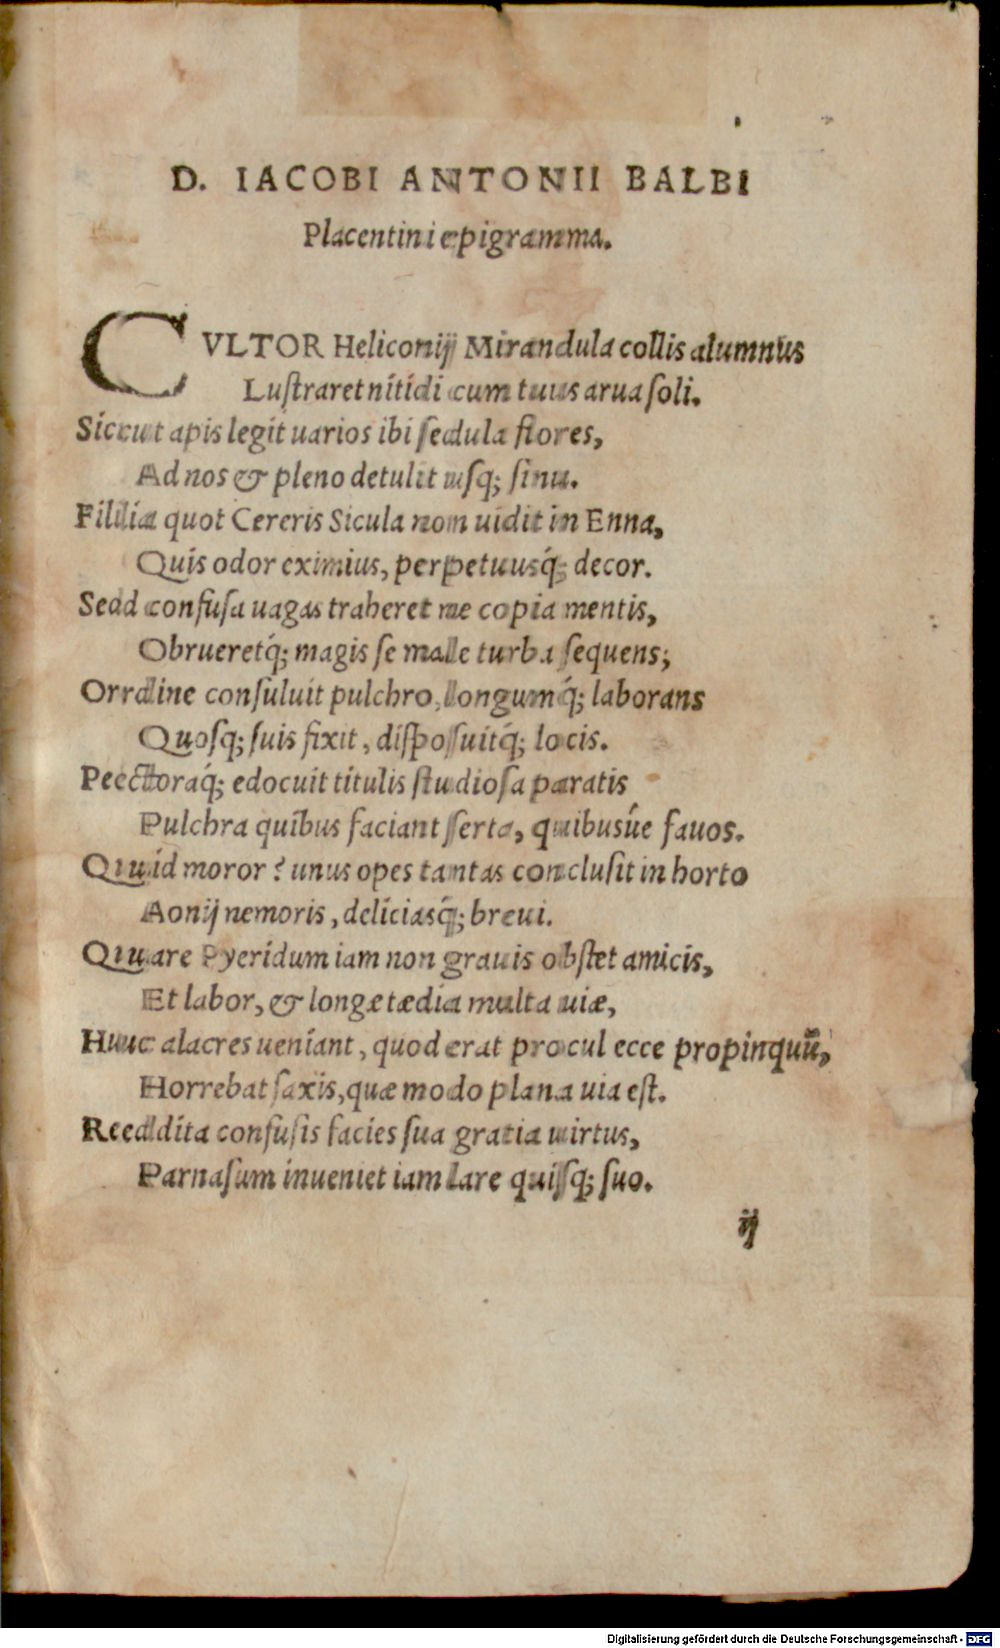 D. IACOBI ANTONII BALBI
Placentini epigramma.
CVLTOR Heliconij Mirandula collis alumnus
Lustraret nitidi cum tuus arua soli.
Sicut apis legit uarios ibi sedula flores,
Ad nos & pleno detulit usq; sinu.
Filia quot Cereris Sicula non uidit in Enna,
Quis odor eximius, perpetuusq́; decor.
Sed confusa uagas traheret ne copia mentis,
Obrueretq́; magis se male turba sequens;
Ordine consuluit pulchro, longumq́; laborans
Quosq; suis fixit, disposuitq́; locis.
Pectoraq́; edocuit titulis studiosa paratis
Pulchra quibus faciant serta, quibusúe fauos.
Quid moror? unus opes tantas conclusit in horto
Aonij nemoris, deliciasq́; breui.
Quare Pyeridum iam non grauis obstet amicis,
Et labor, & longæ tædia multa uiæ,
Huc alacres ueniant, quod erat procul ecce propinquũ,
Horrebat saxis, quæ modo plana uia est.
Reddita confusis facies sua gratia uirtus,
Parnasum inueniet iam lare quisq; suo.
ij
Digitalisierung gefördert durch die Deutsche Forschungsgemeinschaft - DFG